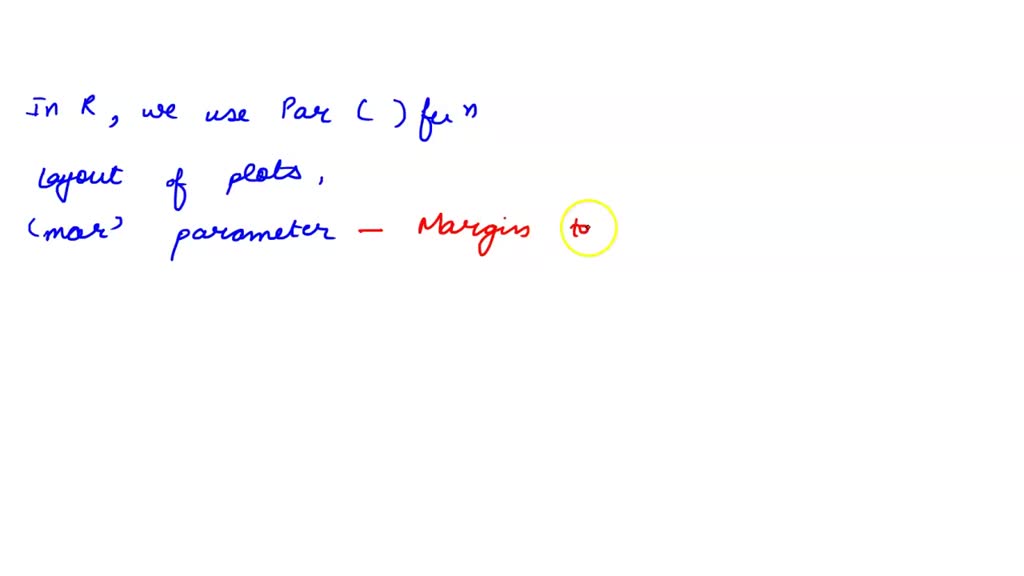 In R, we use Par ( ) fun
Layout of plots,
(mar) parameter — Margins to